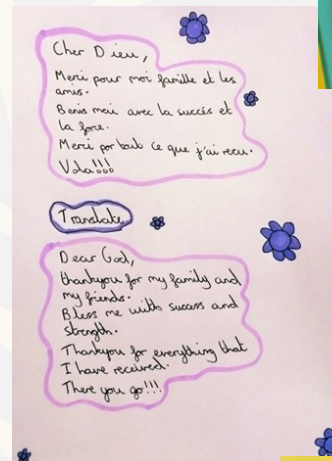 Cher Dieu,
Merci pour moi famille et les
amis.
Benis moi avec la succés et
la force.
Merci por tout ce que j'ai recu.
Vola!!!
Translate
Dear God,
thankyou for my family and
my friends.
Bless me with success and
strength.
Thankyou for everything that
I have received.
There you go!!!